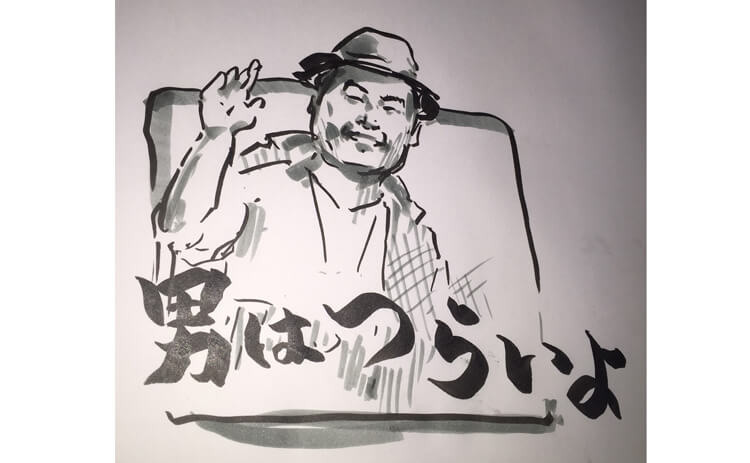 男はつらいよ